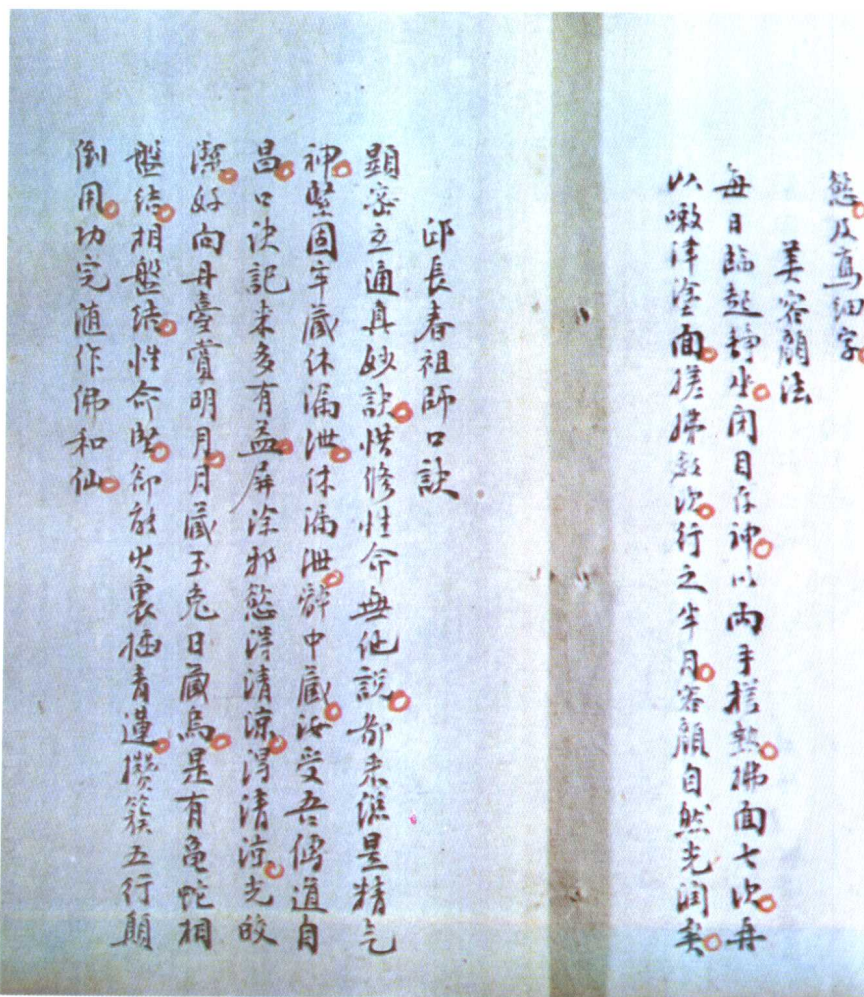 慾及寫細字
美容顏法
每日臨起靜坐閉目存神以兩手搓熱拂面七次再
以嗽津塗面搓拂數次行之半月容顏自然光潤矣
邱長春祖師口訣
顯密立通真妙訣惜修性命無他說都来總是精氣
神堅固牢藏休漏泄休漏泄體中藏汝受吾傳道自
昌口决記来多有益屏除邪慾得清涼得清涼光皎
潔好向丹臺賞明月月藏玉兔日藏烏是有龜蛇相
盤結相盤結性命堅却能火裏插青蓮攢簇五行顛
倒用功完隨作佛和仙